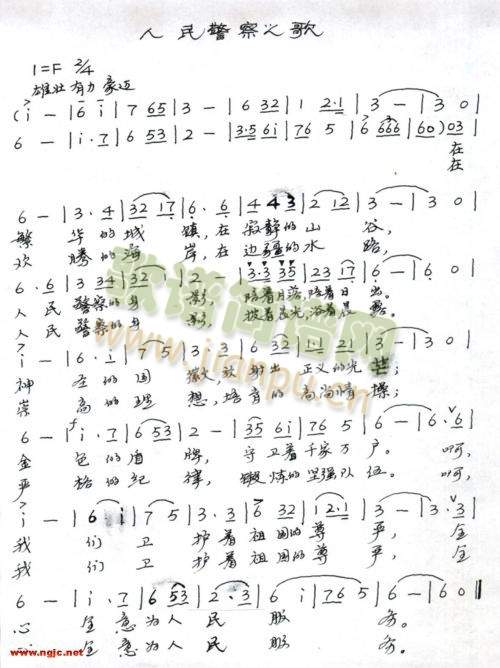 人民警察之歌
1=F 2/4
雄壮 有力 豪迈
(i - | 6 i | 7 65 | 3 - | 6 32 | 1 2·1 | 3 - | 3 0 |
6 - | i·7 | 6 53 | 2 - | 3·5 6i | 76 5 | 6 666 | 60) 03 |
在
在
6 - | 3·4 | 32 17 | 6·6 | 4 43 | 2 12 | 3 - | 3 0 |
繁 华的城 镇,在寂静的山 谷,
欢 腾的海 岸,在边疆的水 路,
6·6 | 3 34 | 32 | 2 - | 3·3 35 | 23 17 | 6 - | 6 0 |
人民警察的身 影, 陪着月落,陪着日 出。
人民警察的身 影, 披着星光,浴着晨 露。
i - | 6·i | 7 5 | 3·3 | 6 32 | 1·1 21 | 3 - | 3 0 |
神 圣的国 徽,放射出 正义的光 芒;
崇 高的理 想,培育的高尚情 操;
6 - | i·7 | 6 53 | 2 - | 35 6i | 765 | 6 - | 6·6 |
金 色的盾 牌, 守卫着千家万 户。 啊,
严 格的纪 律, 锻炼的坚强队 伍。 啊,
i - | 6 i | 7 5 | 3·3 | 6 32 | 1 2·1 | 3 - | 3·3 |
我 们 卫 护着祖国的尊 严, 全
我 们 卫 护着祖国的尊 严, 全
6 - | i·7 | 6 53 | 2·3 | 6 i | 76 5 | 6 - | 6 0 ‖
心 全意为人民 服 务。
心 全意为人民 服 务。
歌谱简谱网
www.jianpu.cn
www.ngjc.net